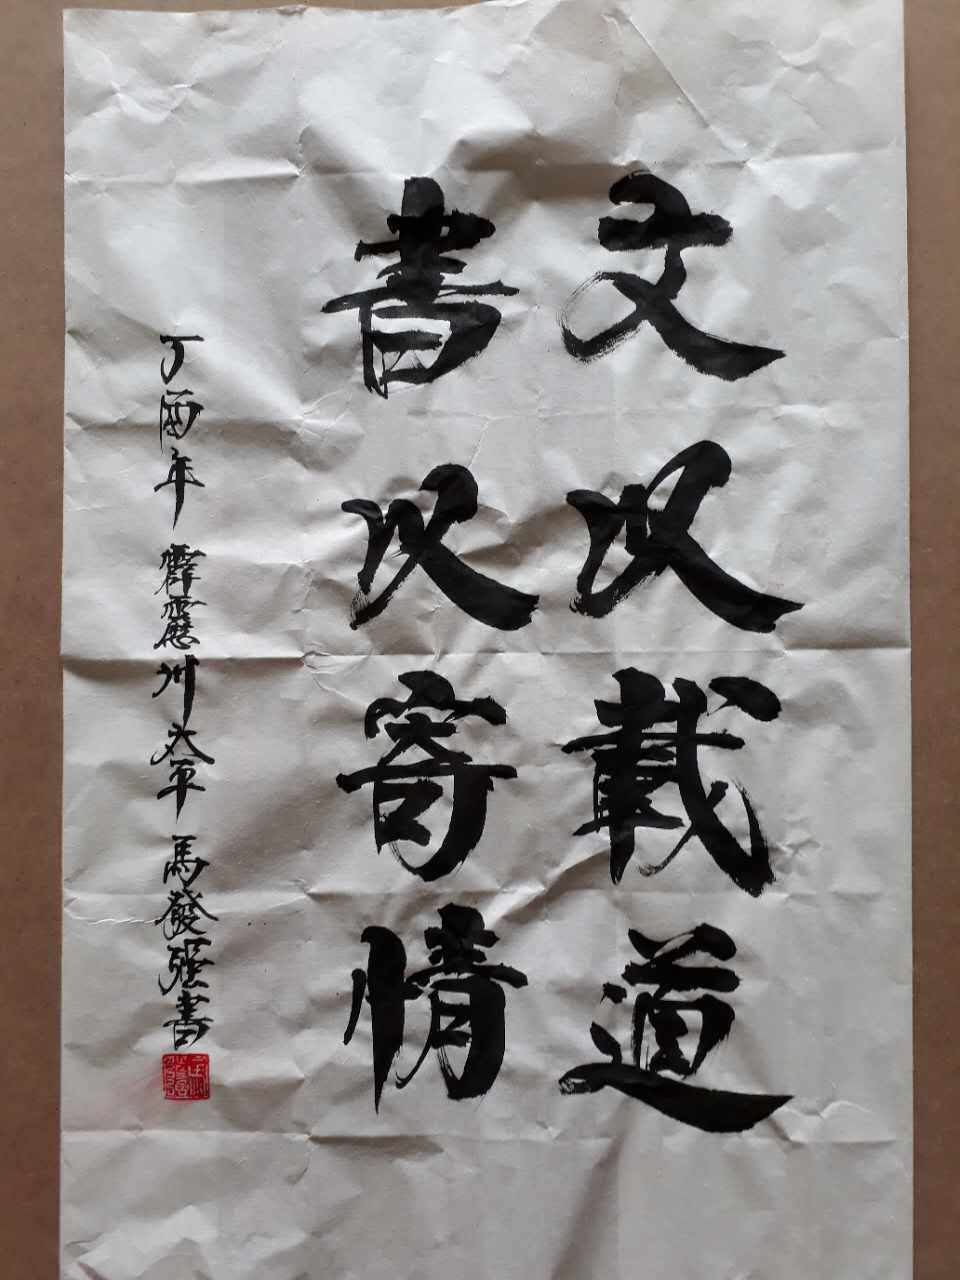 文以載道
書以寄情
丁酉年 霹靂州太平 馬發强書